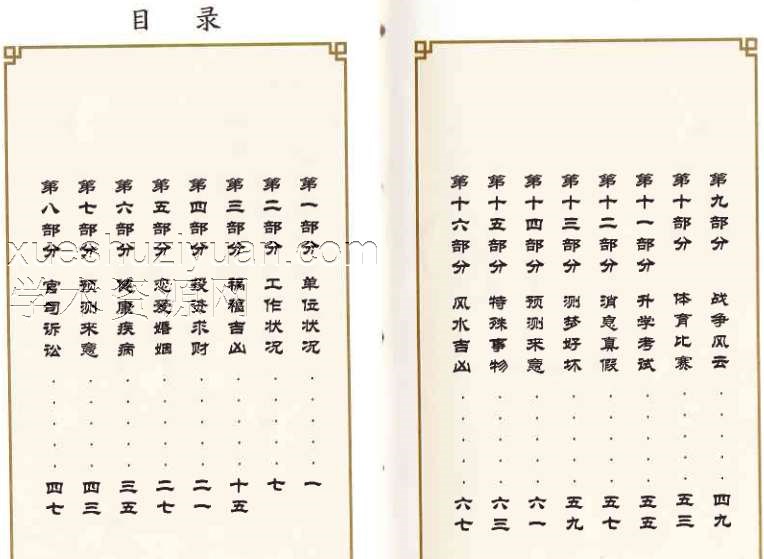 目录
第一部分 单位状况......一
第二部分 工作状况......七
第三部分 祸福吉凶......十五
第四部分 投资求财......二一
第五部分 恋爱婚姻......二七
第六部分 健康疾病......三五
第七部分 预测来意......四三
第八部分 官司诉讼......四七
第九部分 战争风云.....四九
第十部分 体育比赛.....五三
第十一部分 升学考试.....五五
第十二部分 消息真假.....五七
第十三部分 测梦好坏.....五九
第十四部分 预测来意.....六一
第十五部分 特殊事物.....六三
第十六部分 风水吉凶.....六七
xueshuziyuan.com
学术资源网